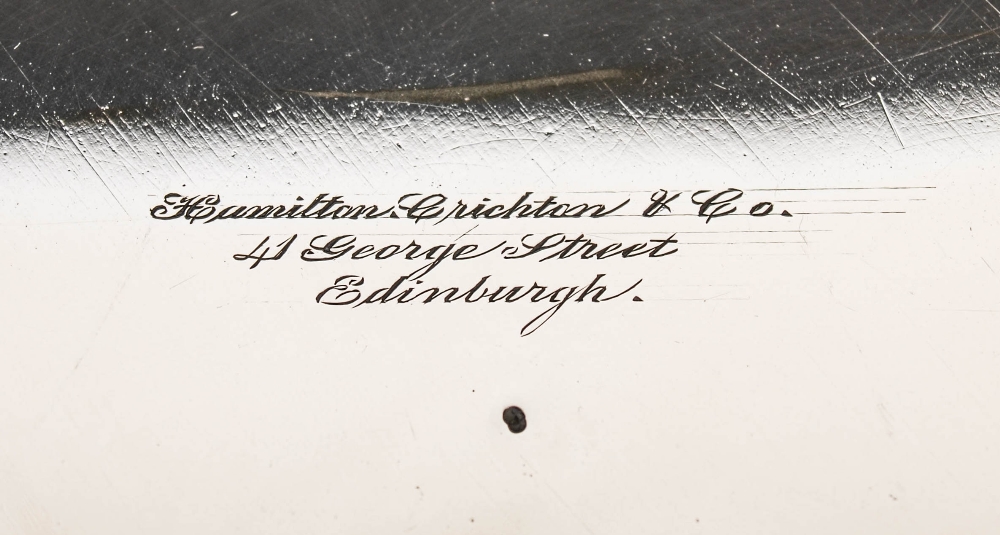 Hamilton, Crichton & Co.
41 George Street
Edinburgh.